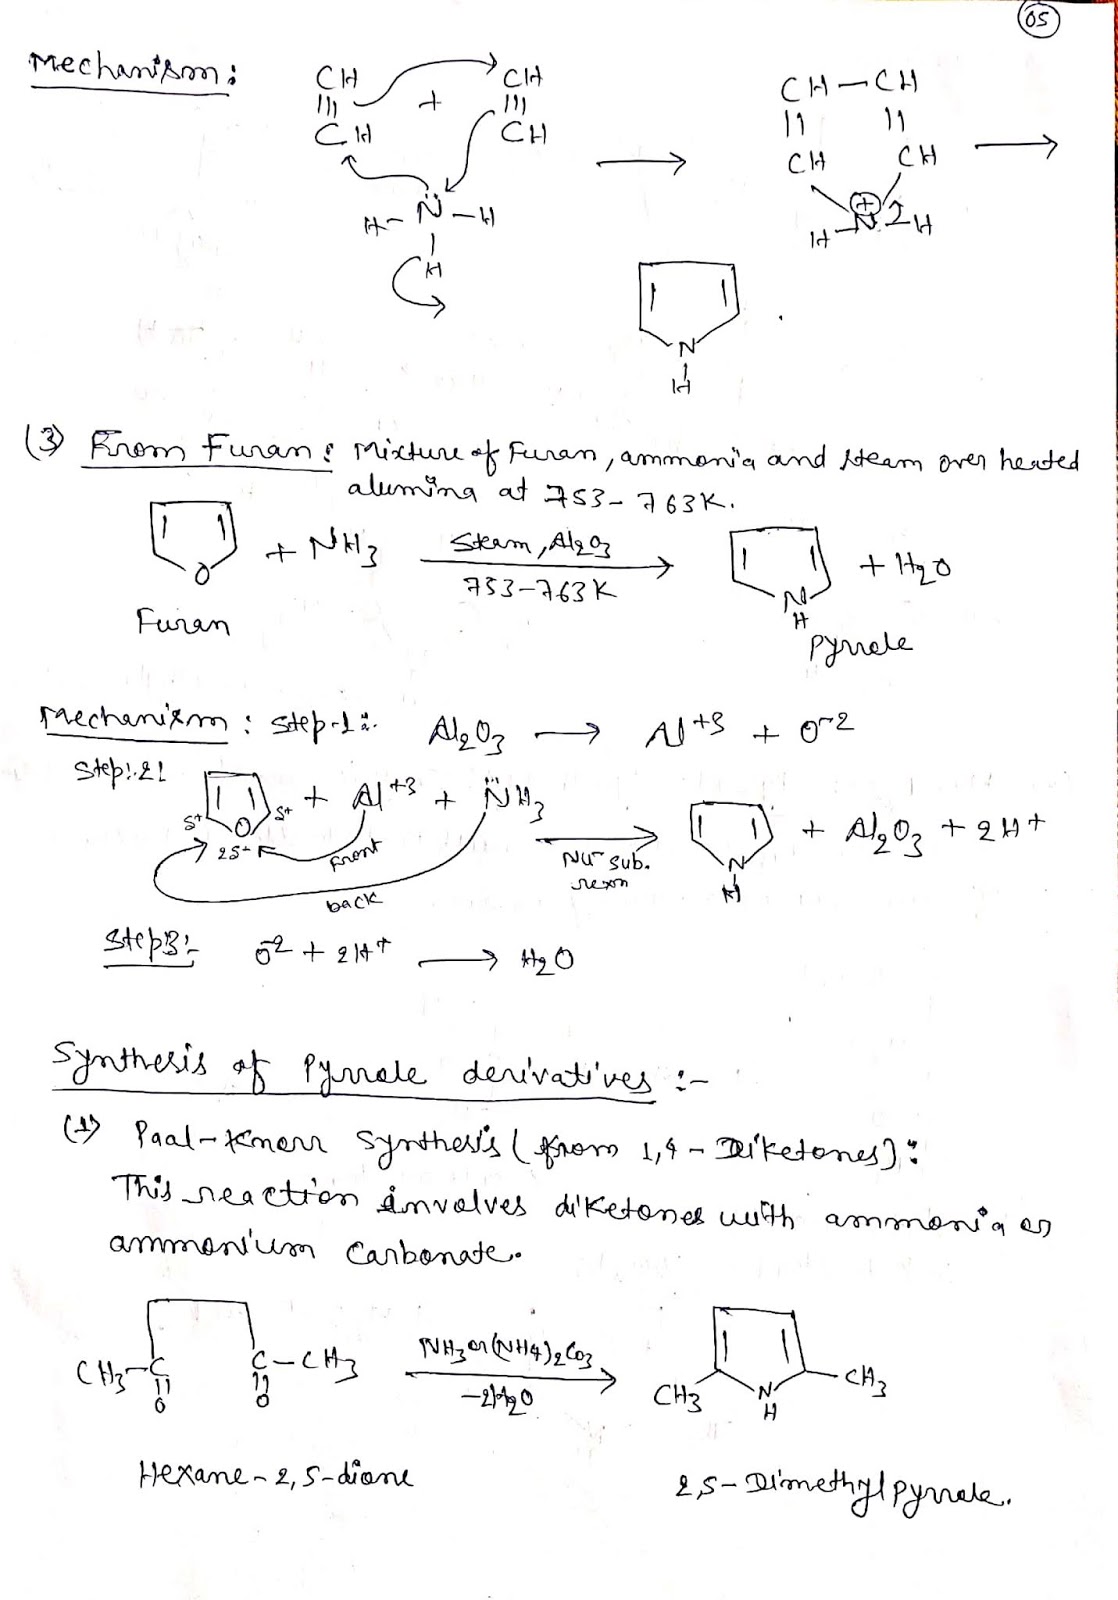 05
Mechanism:
CH CH CH — CH
+
CH CH CH CH
H - N̈ - H H - N⊕ H
H
N
H
(3) From Furan: Mixture of Furan, ammonia and steam over heated
alumina at 753-763K.
O + NH3 Steam, Al2O3 N + H2O
753-763K H
Furan Pyrrole
Mechanism: Step-1:- Al2O3 → Al+3 + O-2
Step:-2:
O + Al+3 + N̈H3 → N + Al2O3 + 2H+
δ+ δ+ H
2δ+ front Nu- sub.
back rexn
Step3:- O-2 + 2H+ → H2O
Synthesis of Pyrrole derivatives :-
(1) Paal-Knorr Synthesis (from 1,4-Diketones):
This reaction involves diketones with ammonia or
ammonium carbonate.
CH3-C C-CH3 NH3 or (NH4)2CO3 CH3 N CH3
O O -2H2O H
Hexane-2,5-dione 2,5-Dimethylpyrrole.